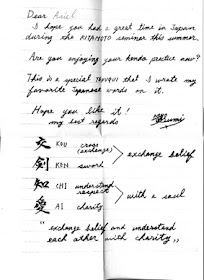 Dear Ariel
I hope you had a great time in Japan
during the KITAMOTO seminar this summer.
Are you enjoying your kendo practice now?
This is a special TENUGUI that I wrote my
favorite Japanese words on it.
Hope you like it!
my best regards
交 KOU cross (exchange)
剣 KEN sword
exchange belief
知 CHI understand respect
愛 AI charity
with a soul
"exchange belief and understand
each other with charity"